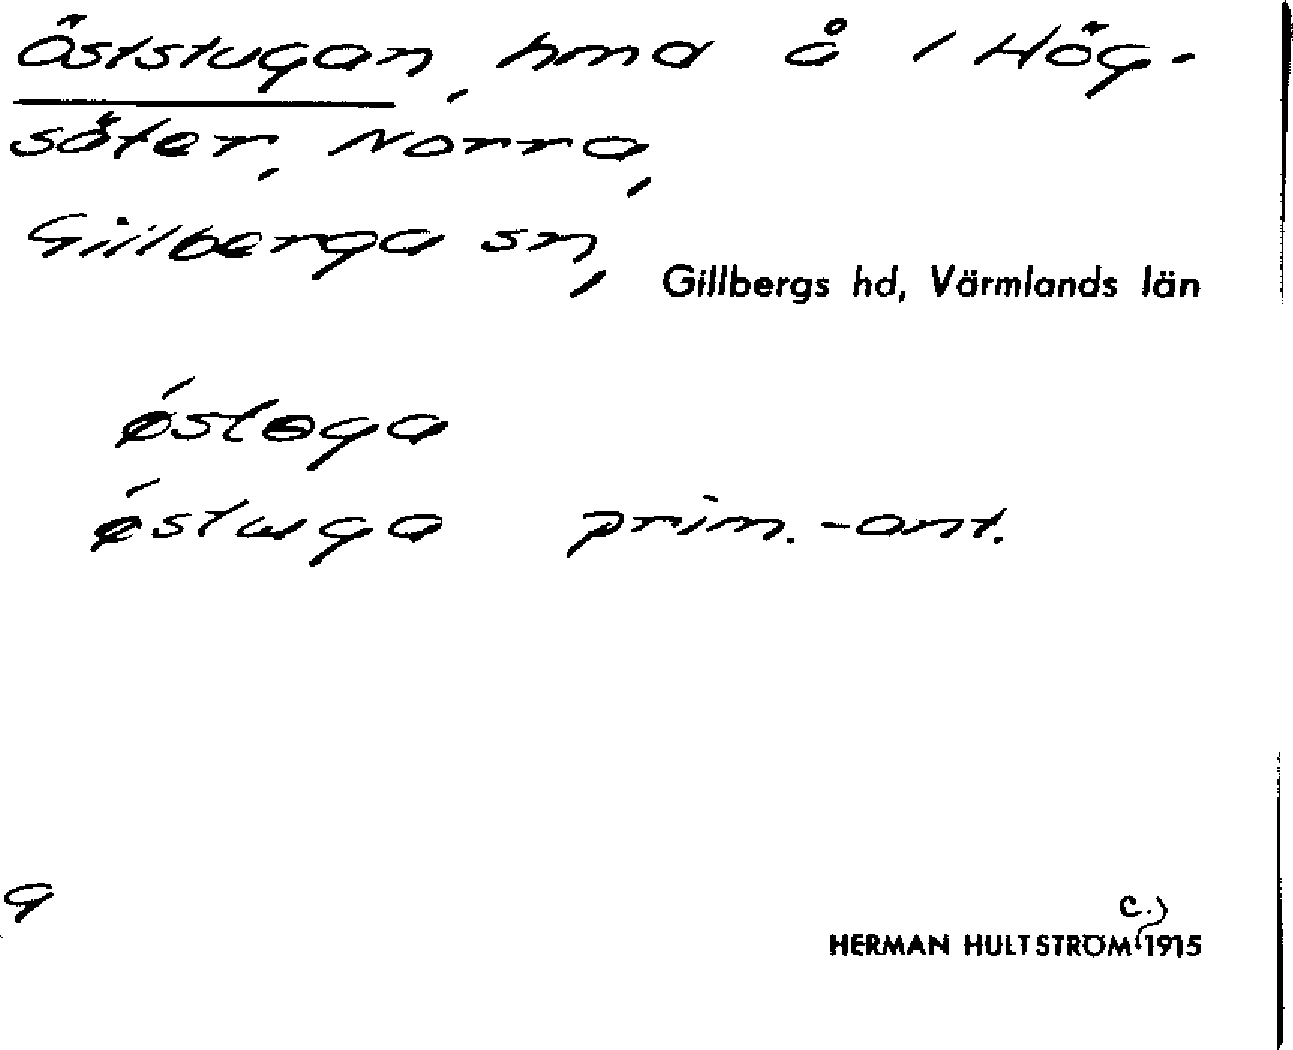 Öststugan, hmd å 1 Hög-
säter, Norra,
Gillberga sn,
Gillbergs hd, Värmlands län
ǿstoga
ǿstuga prim.-ant.
9
C.
HERMAN HULTSTRÖM 1915